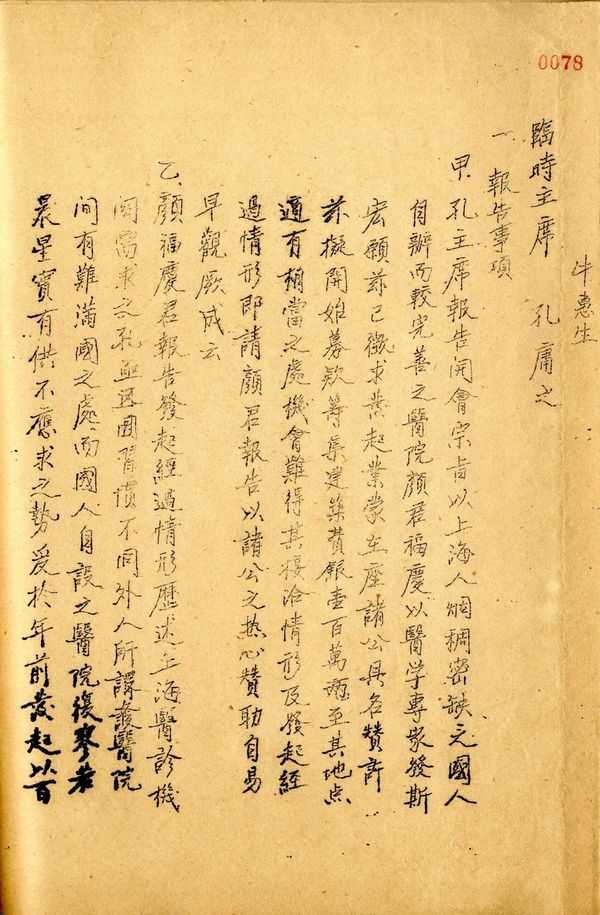 0078
牛惠生
臨時主席 孔庸之
一 報告事項
甲、孔主席報告開會宗旨以上海人烟稠密缺乏國人
自辦而較完善之醫院顏君福慶以醫学專家發斯
宏願茲已徵求發起業蒙在座諸公具名贊許
茲擬開始募欵籌集建築費銀壹百萬至其地点
適有相當之處機會難得其接洽情形及發起經
過情形即請顏君報告以諸公之热心贊助自易
早觀厥成云
乙、顏福慶君報告發起經過情形歷述上海醫診機
関需求之孔亟返國習慣不同外人所設醫院
間有難滿國之處而國人自設之醫院復寥若
晨星實有供不應求之勢爰於年前發起以百